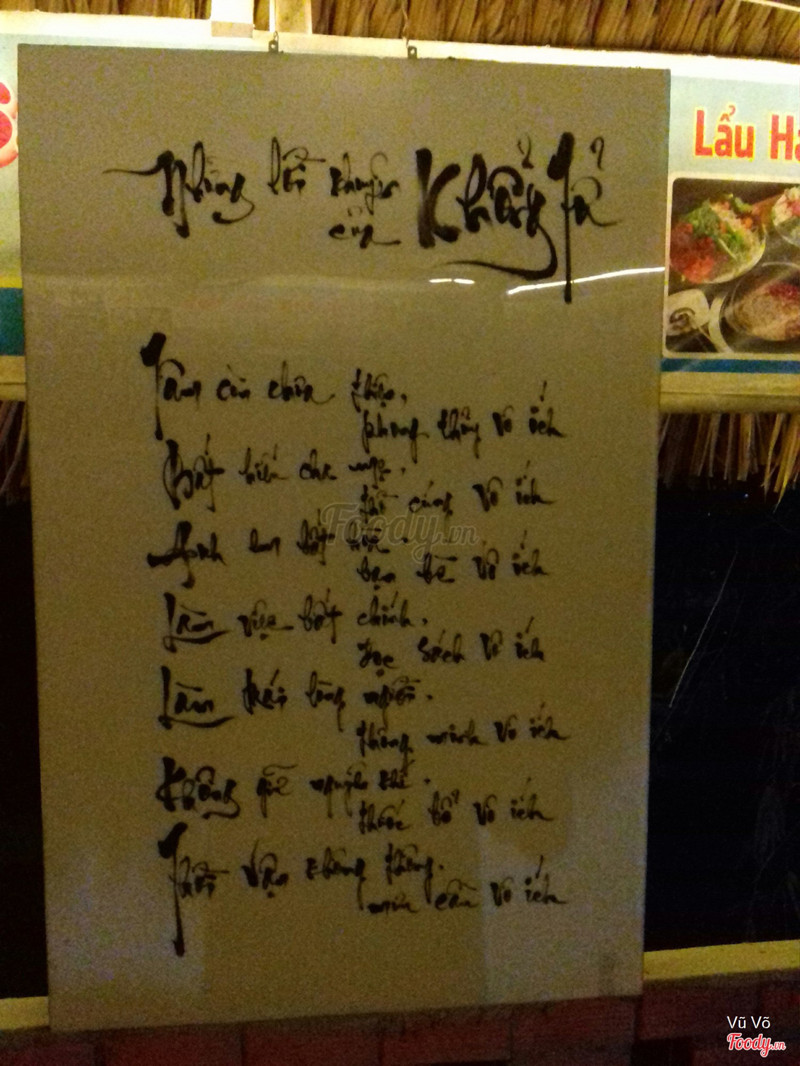 Những lời khuyên
của Khổng Tử
Lẩu Hả
Tâm còn chưa thiện,
phong thủy vô ích
Bất hiếu cha mẹ,
thờ cúng vô ích
Anh em bất hòa,
bạn bè vô ích
Làm việc bất chính,
đọc sách vô ích
Làm trái lòng người,
thông minh vô ích
Không giữ nguyên khí,
thuốc bổ vô ích
Thời vận không thông,
mưu cầu vô ích
Foody.vn
Vũ Võ
Foody.vn